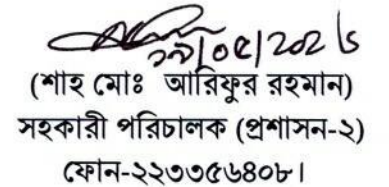 (শাহ মোঃ আরিফুর রহমান)
সহকারী পরিচালক (প্রশাসন-২)
ফোন-২২৩৩৫৬৪০৮।